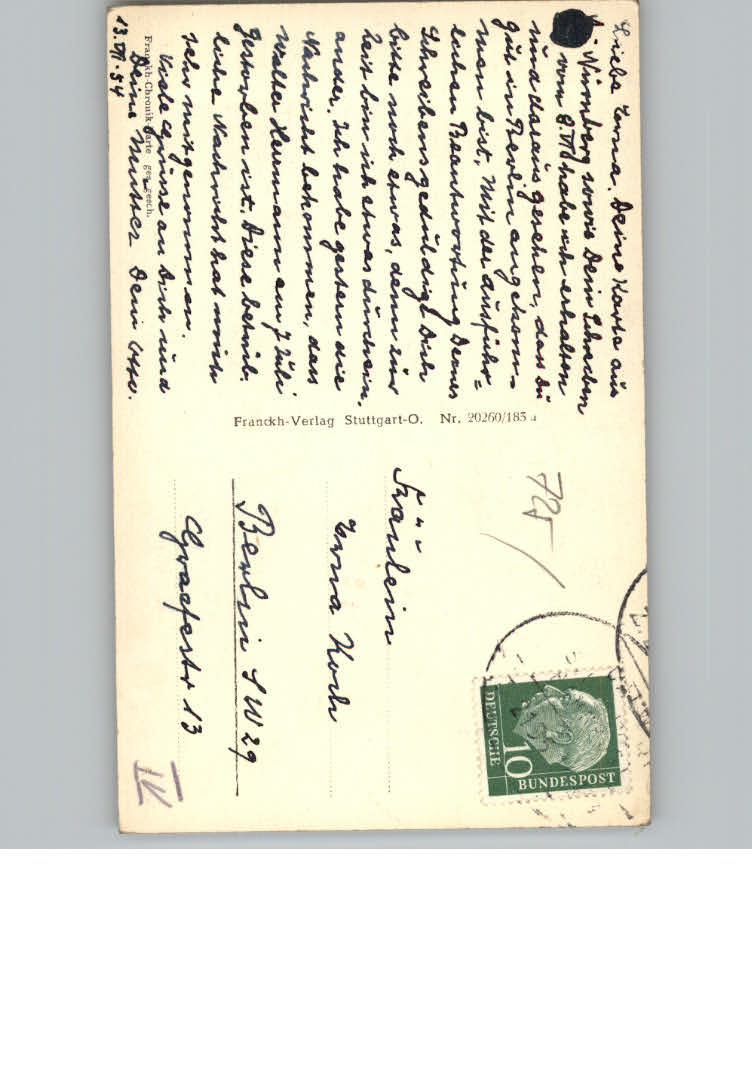 Liebe Erna. Deine Karte aus
Nürnberg sowie Dein Schreiben
vom 8.VII habe ich erhalten
und daraus gesehen, das Du
gut in Berlin angekom-
men bist. Mit der ausführ=
lichen Beantwortung Deines
Schreibens geduldige Dich
bitte noch etwas, denn zur
Zeit bin ich etwas durchein.
ander. Ich habe gestern die
Nachricht bekommen, dass
Walter Hermann am 7 Juli
gestorben ist. Diese betrüb-
liche Nachricht hat mich
sehr mitgenommen.
Viele Grüsse an Dich und
Deine Mutter Dein Otto.
13.VII.54
Franckh-Chronik-Karte ges. gesch.
Franckh-Verlag Stuttgart-O. Nr. 20260/183 a
Fräulein
Erna Koch
Berlin SW 29
Graefestr 13
IV
DEUTSCHE
10
BUNDESPOST